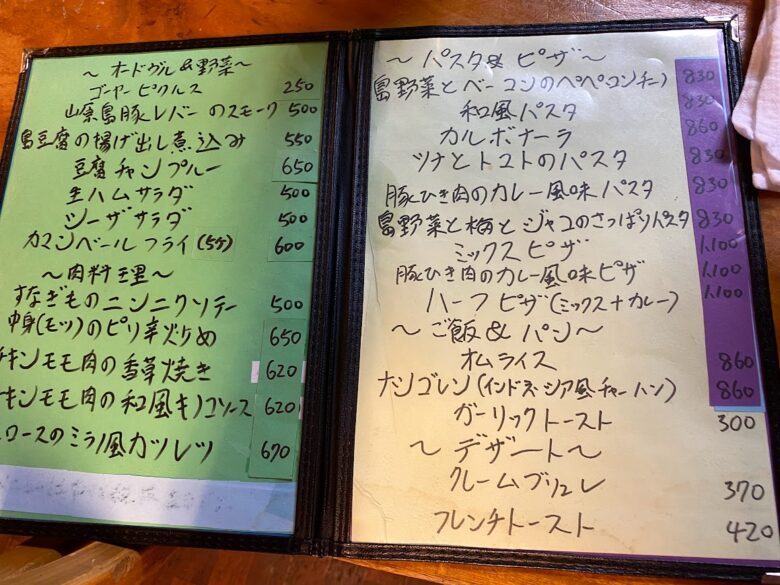 〜 オードヴル & 野菜 〜
ゴーヤーピクルス 250
山原島豚レバーのスモーク 500
島豆腐の揚げ出し煮込み 550
豆腐チャンプルー 650
生ハムサラダ 500
シーザサラダ 500
カマンベールフライ(5ケ) 600
〜 肉料理 〜
すなぎものニンニクソテー 500
中身(モツ)のピリ辛炒め 650
チキンモモ肉の香草焼き 620
キンモモ肉の和風キノコソース 620
ロースのミラノ風カツレツ 670
〜 パスタ & ピザ 〜
島野菜とベーコンのペペロンチーノ 830
和風パスタ 830
カルボナーラ 860
ツナとトマトのパスタ 830
豚ひき肉のカレー風味パスタ 830
島野菜と梅とジャコのさっぱりパスタ 830
ミックスピザ 1,100
豚ひき肉のカレー風味ピザ 1,100
ハーフピザ(ミックス+カレー) 1,100
〜 ご飯 & パン 〜
オムライス 860
ナシゴレン(インドネシア風チャーハン) 860
ガーリックトースト 300
〜 デザート 〜
クレームブリュレ 370
フレンチトースト 420